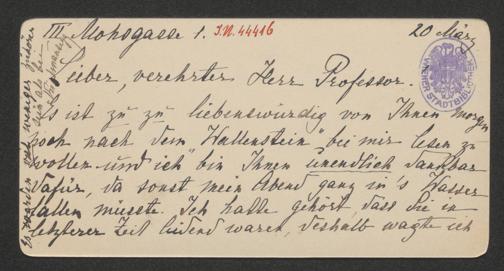 III Mohsgasse 1. I.N. 44416 20 März
Lieber, verehrter Herr Professor.
Es ist zu zu liebenswürdig von Ihnen morgen
noch nach dem "Wallenstein" bei mir lesen zu
wollen und ich bin Ihnen unendlich dankbar
dafür, da sonst mein Abend ganz in's Wasser
fallen müsste. Ich hatte gehört, dass Sie in
letzterer Zeit leidend waren, deshalb wagte ich
Es werden viel weniger Zuhörer
sein als bei
WIENER STADTBIBLIOTHEK